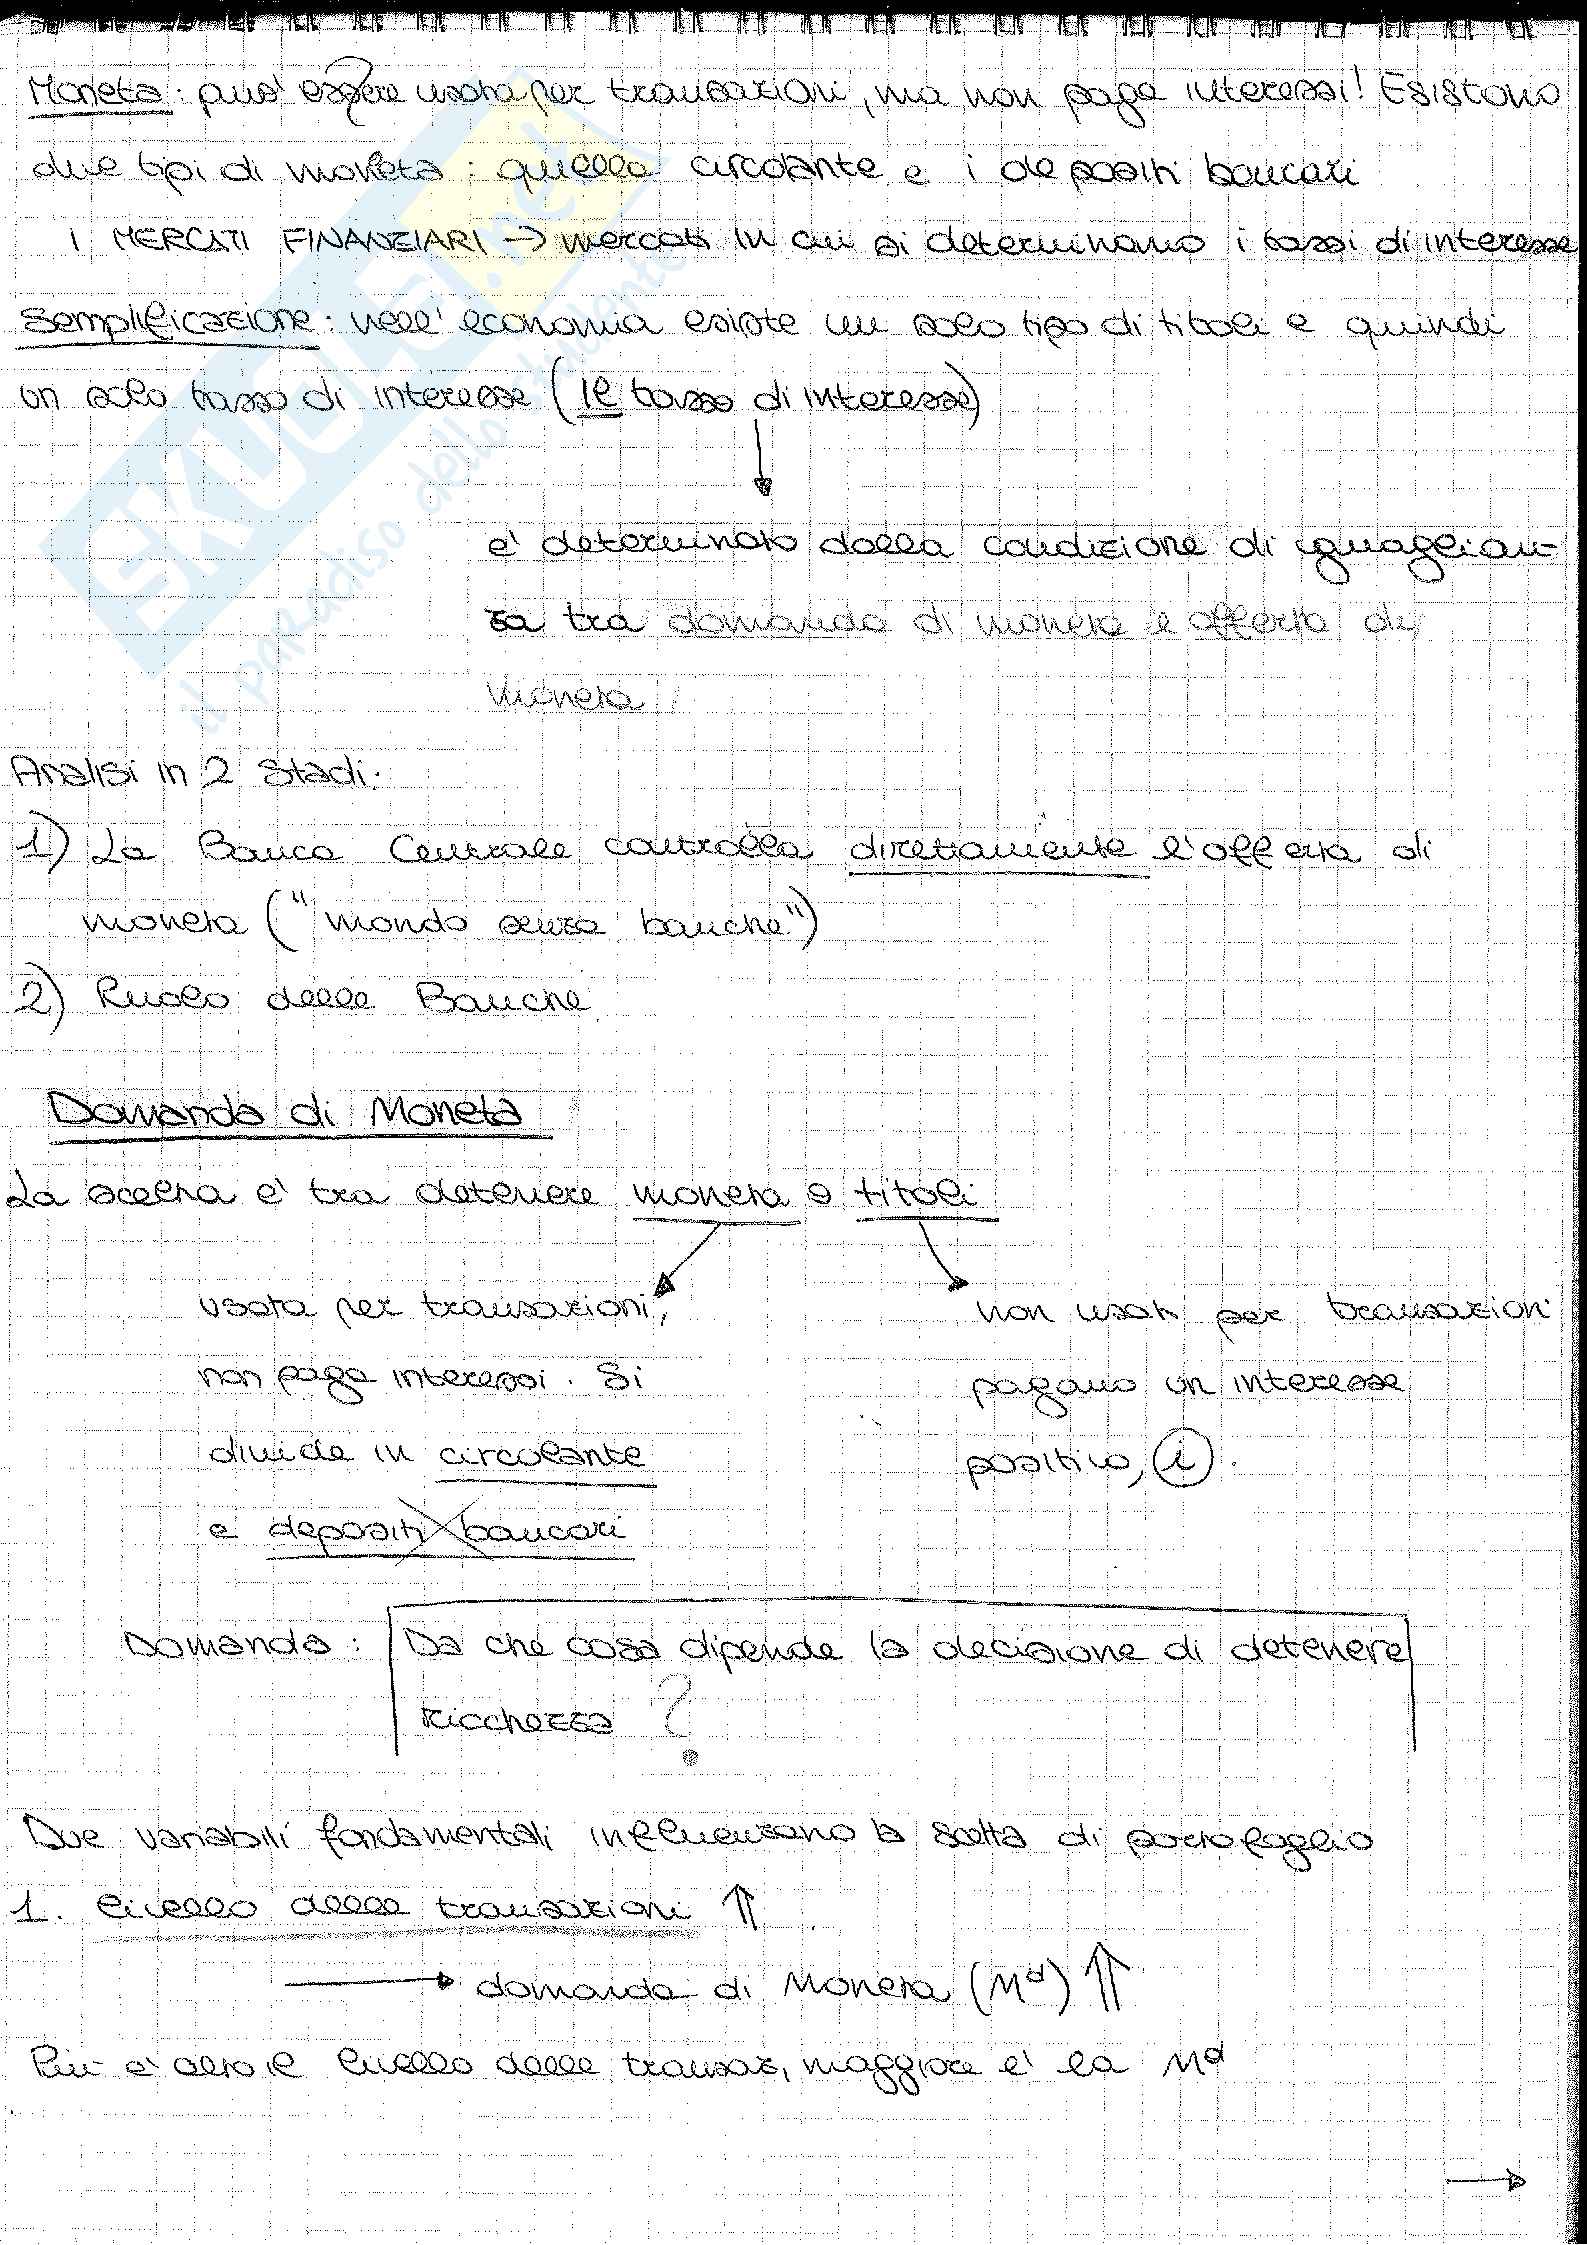 Moneta: può essere usata per transazioni, ma non paga interessi! Esistono
due tipi di moneta: quella circolante e i depositi bancari
I MERCATI FINANZIARI → mercati in cui si determinano i tassi di interesse
Semplificazione: nell'economia esiste un solo tipo di titoli e quindi
un solo tasso di interesse (il tasso di interesse)
e' determinato dalla condizione di iguaglian-
za tra domanda di moneta e offerta di
moneta
Analisi in 2 stadi:
1) La Banca Centrale controlla direttamente l'offerta di
moneta ("mondo senza banche")
2) Ruolo delle Banche
Domanda di Moneta
La scelta e' tra detenere moneta o titoli
usata per transazioni,
non paga interessi. Si
divide in circolante
e depositi bancari
non usati per transazioni
pagano un interesse
positivo, i.
Domanda: Da che cosa dipende la decisione di detenere
ricchezza ?
Due variabili fondamentali influenzano la scelta di portafoglio
1. livello delle transazioni ⇑
→ domanda di Moneta (Mᵈ) ⇑
Piu e' alto il livello delle transaz, maggiore e' la Mᵈ
→
EKUIII.net
il paradiso dello